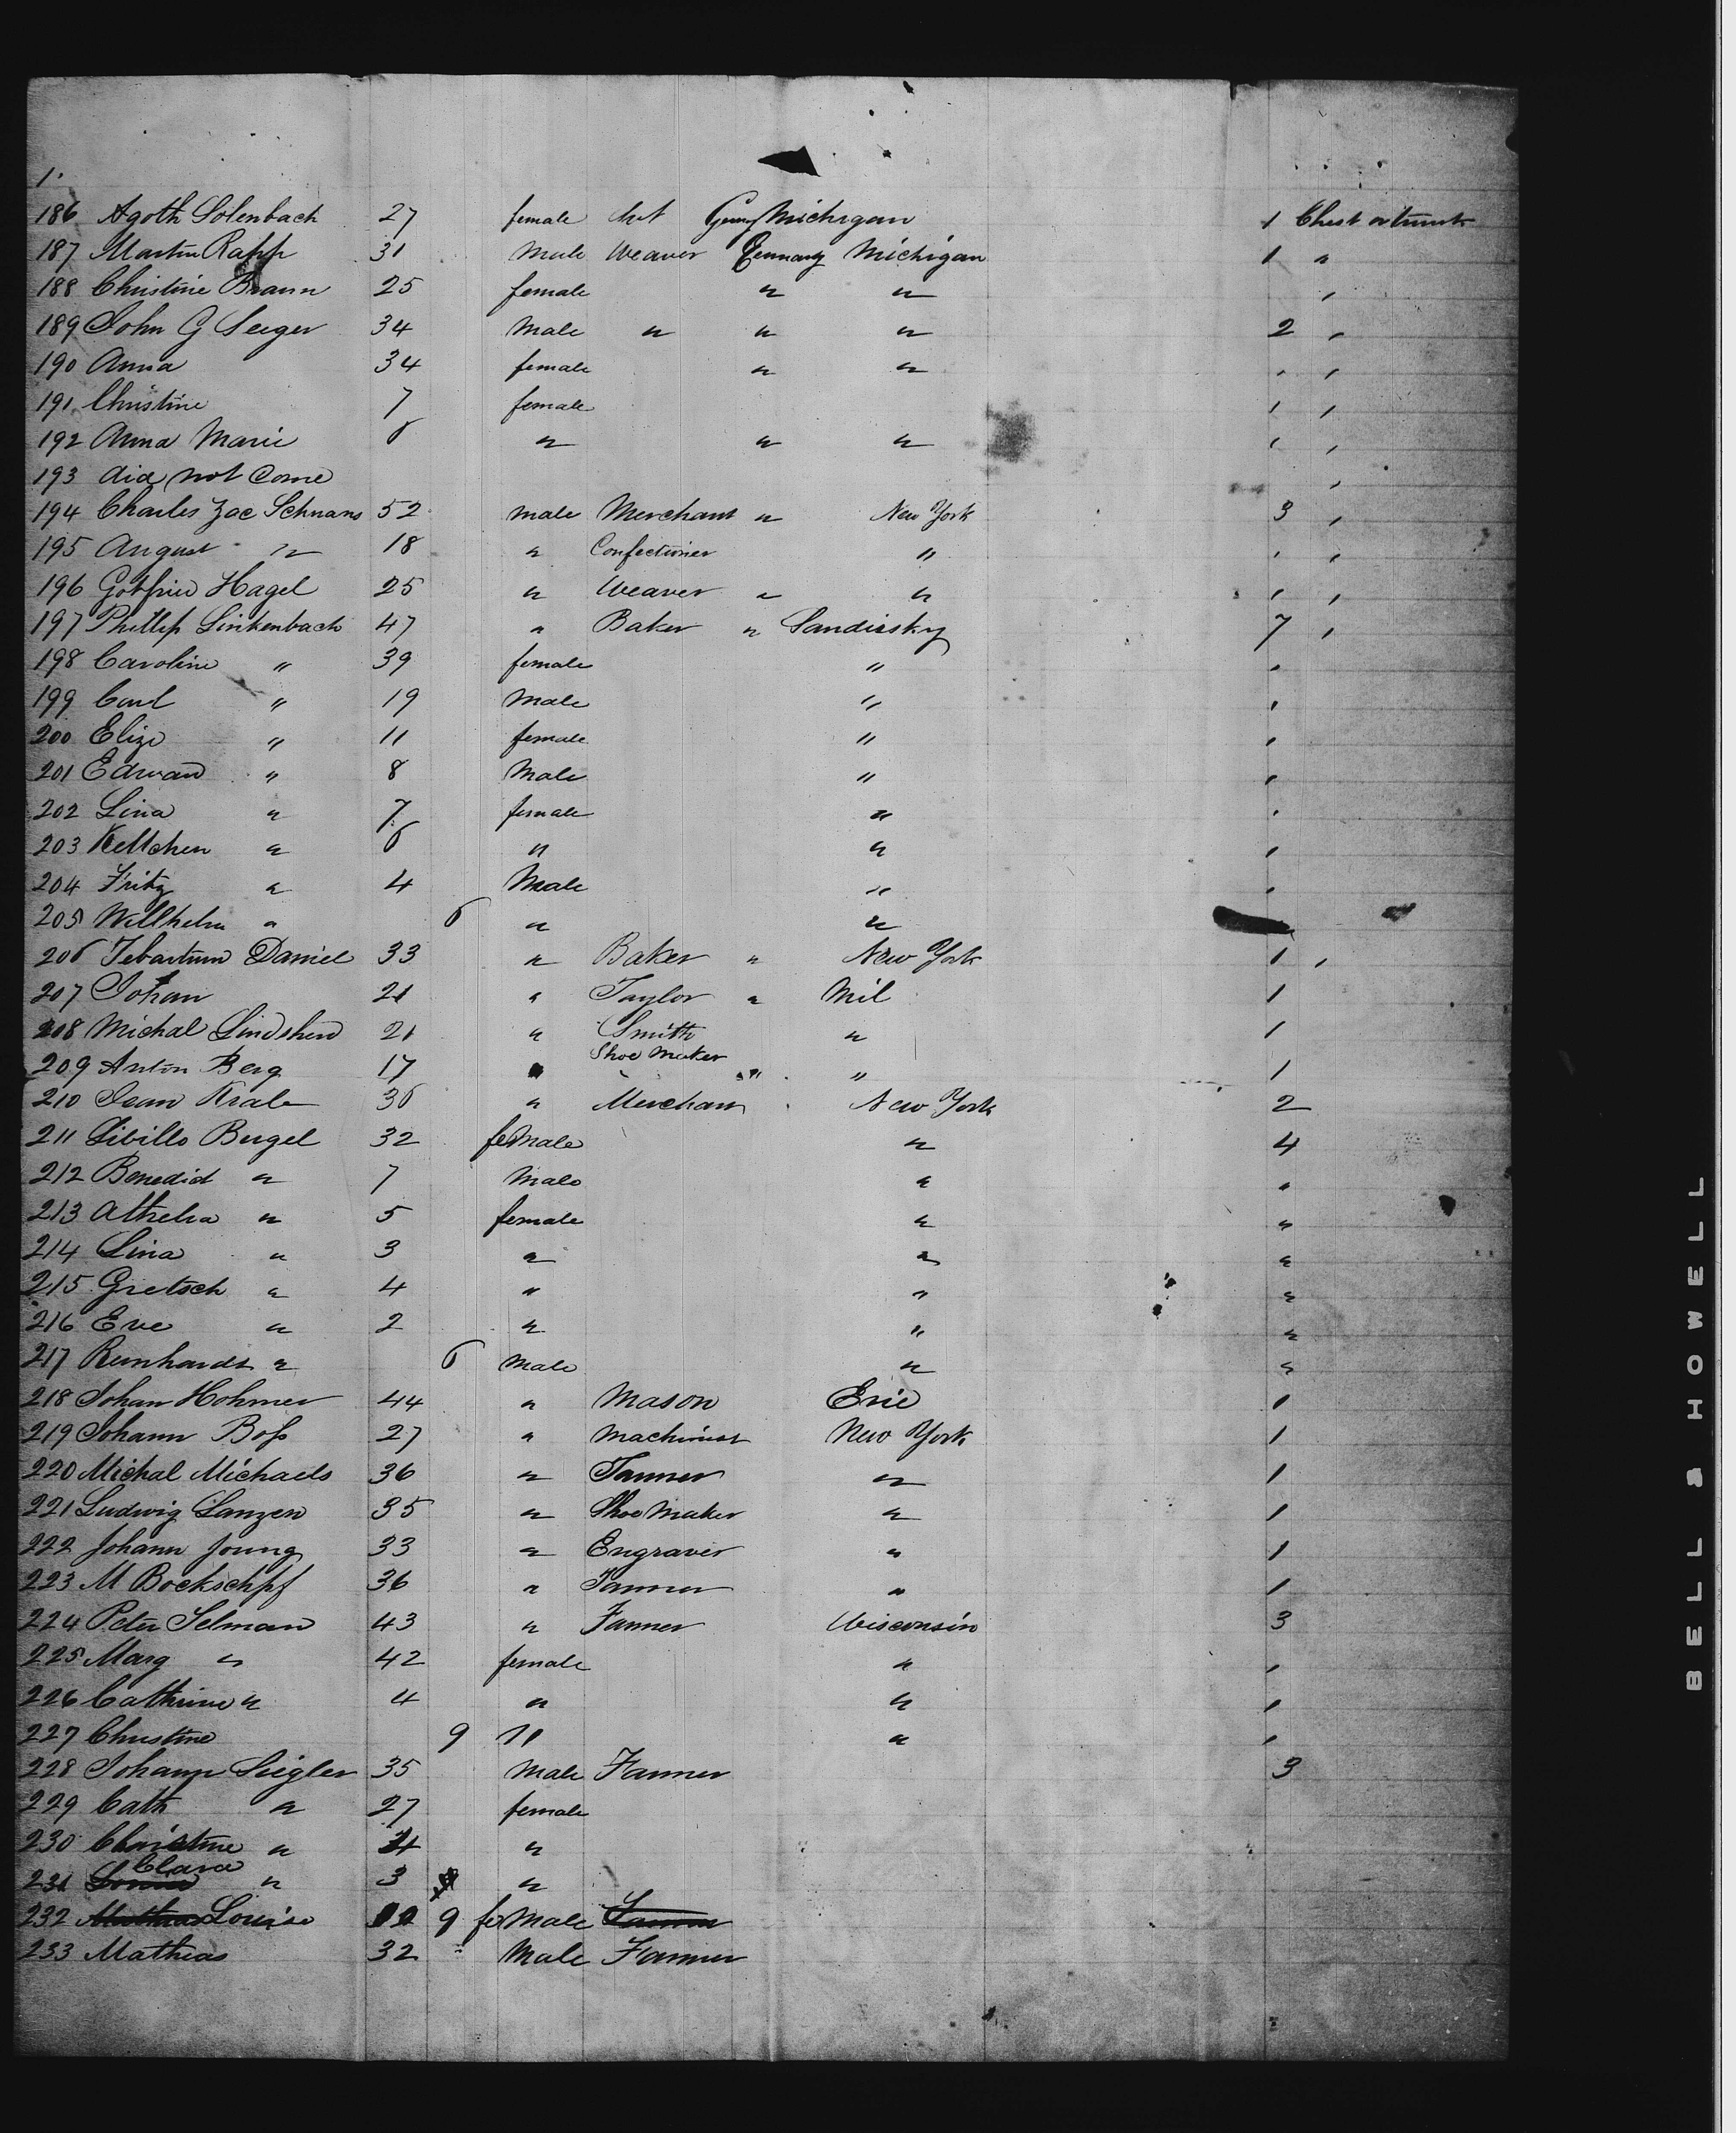 1.
186 Agoth Solenbach 27 female Germ Michigan 1 Chest or trunk
187 Martin Rapp 31 Male Weaver Germany Michigan 1 "
188 Christine Braun 25 female " " "
189 John G Seeger 34 Male " " " 2 "
190 Anna 34 female " " " "
191 Christine 7 female " "
192 Anna Marie 6 " " " " "
193 did not Come "
194 Charles Zac Schwans 52 male Merchant " New York 3 "
195 August " 18 " Confectioner " " "
196 Gotfried Hagel 25 " Weaver " " " "
197 Phillip Linkenbach 47 " Baker " Sandusky 7 "
198 Caroline " 39 female " "
199 Carl " 19 Male " "
200 Elize " 11 female " "
201 Edward " 8 Male " "
202 Lina " 7 female " "
203 Kettchen " 6 " " "
204 Fritz " 4 Male " "
205 Willhelm " 6 " "
206 Daniel 33 " Baker " New York 1 "
207 Johan 21 " Taylor " Mil 1
208 Michal 21 " Smith " 1
209 Anton Berg 17 " Shoe Maker " " 1
210 Jean Krale 36 " Merchant New York 2
211 Sibilla Bergel 32 female " 4
212 Benedict " 7 Male " "
213 Athelia " 5 female " "
214 Lina " 3 " " "
215 Gretsch " 4 " " "
216 Eve " 2 " " "
217 Reinhardt " 6 Male " "
218 Johan Hohmer 44 " Mason Erie 1
219 Johann Boss 27 " Machinist New York 1
220 Michal Michaels 36 " Tanner " 1
221 Ludwig Lanzen 35 " Shoe Maker " 1
222 Johann Joung 33 " Engraver " 1
223 M Bockschpf 36 " Tanner " 1
224 Peter Selman 43 " Farmer Wisconsin 3
225 Marg " 42 female " "
226 Cathrine " 4 " " "
227 Christine 9 " " "
228 Johann Siegler 35 Male Farmer 3
229 Cath " 27 female
230 Christine " 4 "
Clara
231 Louise " 3 "
232 Mathias Louise 9 female Farmer
233 Mathias 32 Male Farmer
BELL & HOWELL